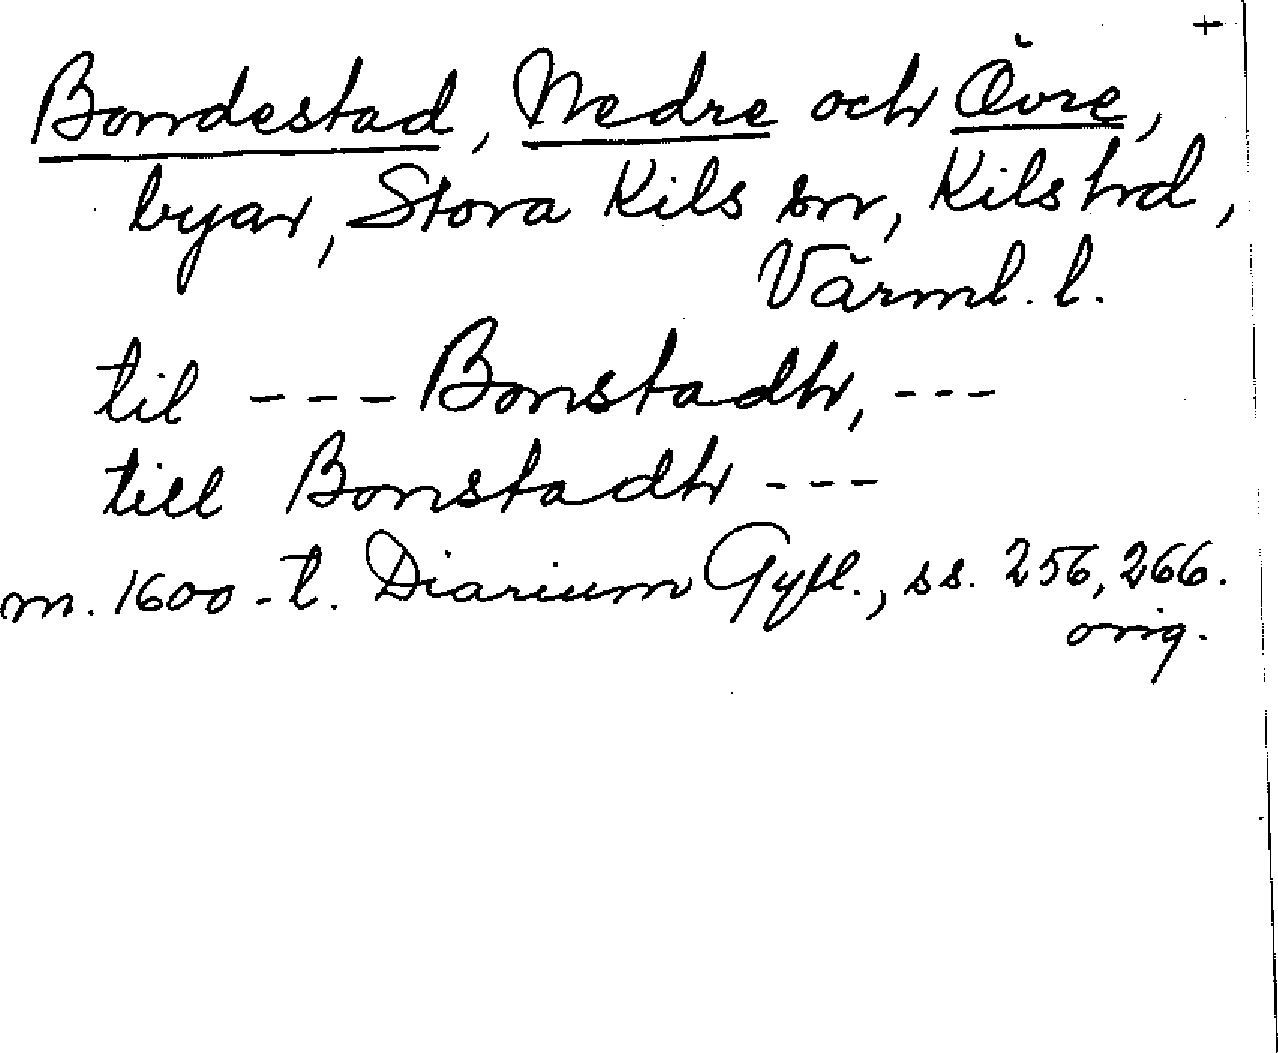 +
Bondestad, Nedre och Övre,
byar, Stora Kils sn, Kils hd,
Värml. l.
til --- Bonstadh, ---
till Bonstadh ---
m. 1600-t. Diarium Gyll., ss. 256, 266.
orig.